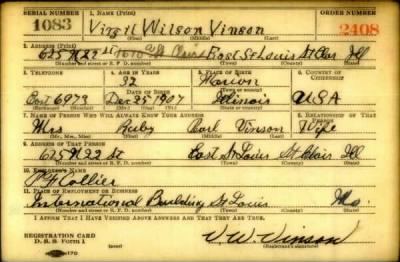 SERIAL NUMBER 1. NAME (Print) ORDER NUMBER
1083 Virgil Wilson Vinson 2408
(First) (Middle) (Last)
2. ADDRESS (Print)
625 N 22 St East St Louis St Clair Ill
(Number and street or R. F. D. number) (Town) (County) (State)
3. TELEPHONE 4. AGE IN YEARS 5. PLACE OF BIRTH 6. COUNTRY OF CITIZENSHIP
32
DATE OF BIRTH (Town or county)
East 6979 Dec 25 1907 Illinois USA
(Exchange) (Number) (Mo.) (Day) (Yr.) (State or country)
7. NAME OF PERSON WHO WILL ALWAYS KNOW YOUR ADDRESS 8. RELATIONSHIP OF THAT PERSON
Mrs Ruby Earl Vinson Wife
(Mr., Mrs., Miss) (First) (Middle) (Last)
9. ADDRESS OF THAT PERSON
625 N 22 St East St Louis St Clair Ill
(Number and street or R. F. D. number) (Town) (County) (State)
10. EMPLOYER'S NAME
P F Collier
11. PLACE OF EMPLOYMENT OR BUSINESS
International Building St Louis Mo.
(Number and street or R. F. D. number) (Town) (County) (State)
I AFFIRM THAT I HAVE VERIFIED ABOVE ANSWERS AND THAT THEY ARE TRUE.
REGISTRATION CARD
D. S. S. Form 1 V. W. Vinson
(Registrant's signature)